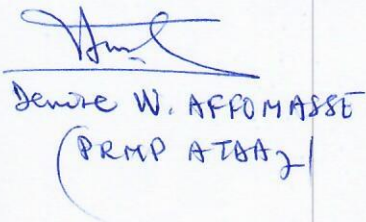 Denise W. AFFOMASSE
(PRMP ATDA